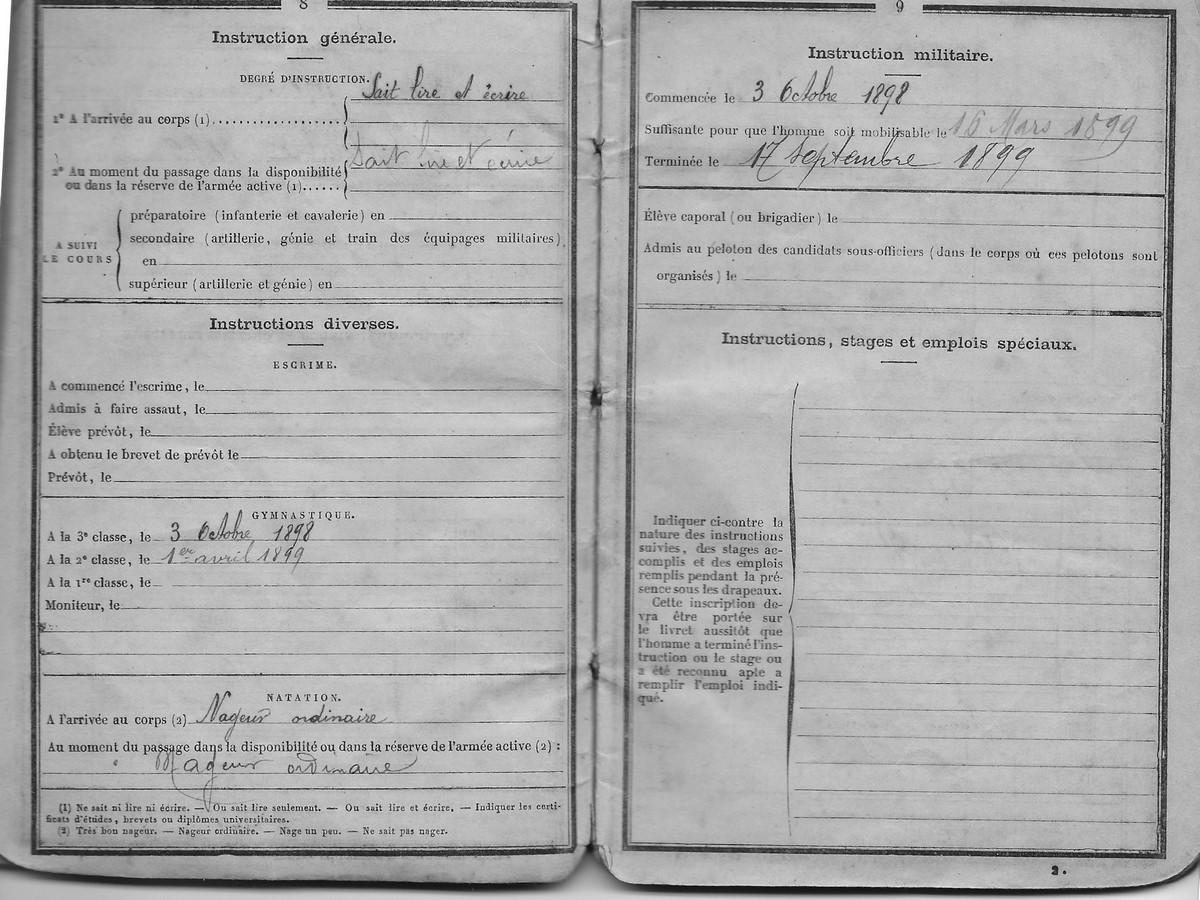 8
Instruction générale.
DEGRÉ D'INSTRUCTION.
Sait lire et écrire
1° A l'arrivée au corps (1)
Sait lire et écrire
2° Au moment du passage dans la disponibilité
ou dans la réserve de l'armée active (1)
A SUIVI
LE COURS
préparatoire (infanterie et cavalerie) en
secondaire (artillerie, génie et train des équipages militaires)
en
supérieur (artillerie et génie) en
Instructions diverses.
ESCRIME.
A commencé l'escrime, le
Admis à faire assaut, le
Élève prévôt, le
A obtenu le brevet de prévôt le
Prévôt, le
GYMNASTIQUE.
A la 3e classe, le 3 Octobre 1898
A la 2e classe, le 1er avril 1899
A la 1re classe, le
Moniteur, le
NATATION.
A l'arrivée au corps (2) Nageur ordinaire
Au moment du passage dans la disponibilité ou dans la réserve de l'armée active (2) :
Nageur ordinaire
(1) Ne sait ni lire ni écrire. — Ou sait lire seulement. — Ou sait lire et écrire. — Indiquer les certi-
ficats d'études, brevets ou diplômes universitaires.
(2) Très bon nageur. — Nageur ordinaire. — Nage un peu. — Ne sait pas nager.
9
Instruction militaire.
Commencée le 3 Octobre 1898
Suffisante pour que l'homme soit mobilisable le 16 Mars 1899
Terminée le 17 septembre 1899
Élève caporal (ou brigadier) le
Admis au peloton des candidats sous-officiers (dans le corps où ces pelotons sont
organisés) le
Instructions, stages et emplois spéciaux.
Indiquer ci-contre la
nature des instructions
suivies, des stages ac-
complis et des emplois
remplis pendant la pré-
sence sous les drapeaux.
Cette inscription de-
vra être portée sur
le livret aussitôt que
l'homme a terminé l'ins-
truction ou le stage ou
a été reconnu apte a
remplir l'emploi indi-
qué.
2.